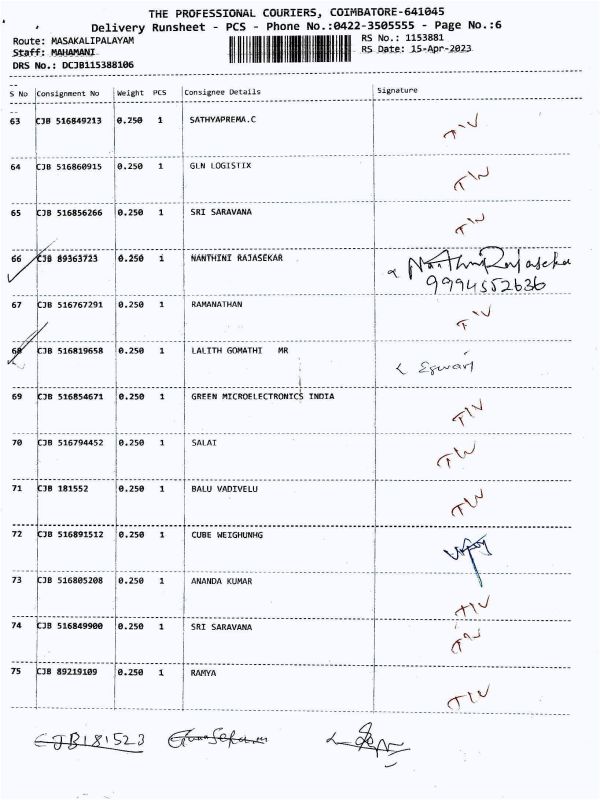 THE PROFESSIONAL COURIERS, COIMBATORE-641045
Delivery Runsheet - PCS - Phone No.:0422-3505555 - Page No.:6
Route: MASAKALIPALAYAM RS No.: 1153881
Staff: MAHAMANI RS Date: 15-Apr-2023
DRS No.: DCJB115388106
S No Consignment No Weight PCS Consignee Details Signature
63 CJB 516849213 0.250 1 SATHYAPREMA.C TIV
64 CJB 516860915 0.250 1 GLN LOGISTIX TIV
65 CJB 516856266 0.250 1 SRI SARAVANA TIV
66 CJB 89363723 0.250 1 NANTHINI RAJASEKAR Nanthini Rajasekar
9994552636
67 CJB 516767291 0.250 1 RAMANATHAN TIV
68 CJB 516819658 0.250 1 LALITH GOMATHI MR Eswari
69 CJB 516854671 0.250 1 GREEN MICROELECTRONICS INDIA TIV
70 CJB 516794452 0.250 1 SALAI TIV
71 CJB 181552 0.250 1 BALU VADIVELU TIV
72 CJB 516891512 0.250 1 CUBE WEIGHUNHG
73 CJB 516805208 0.250 1 ANANDA KUMAR TIV
74 CJB 516849900 0.250 1 SRI SARAVANA TIV
75 CJB 89219109 0.250 1 RAMYA TIV
CJB181523